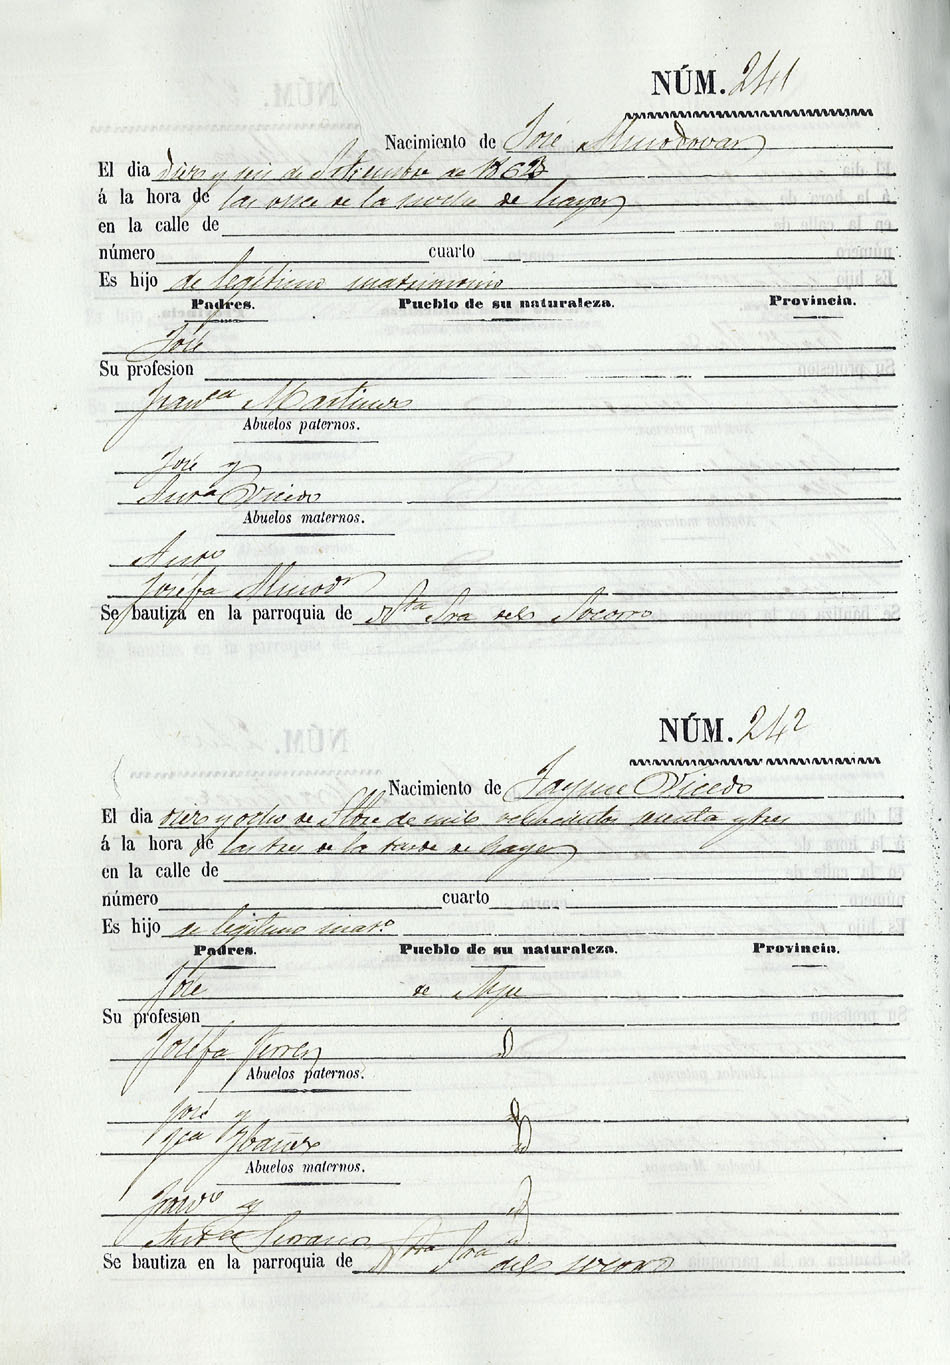 NÚM. 241
Nacimiento de José Almodovar
El dia diez y seis de Setiembre de 1863
á la hora de las once de la noche de hayer
en la calle de
número cuarto
Es hijo de legitimo matrimonio
Padres. Pueblo de su naturaleza. Provincia.
José
Su profesion
Fran.ca Martinez
Abuelos paternos.
José y
Vicedo
Abuelos maternos.
Anto
Josefa
Se bautiza en la parroquia de Ntra Sra del Socorro
NÚM. 242
Nacimiento de Jayme Vicedo
El dia diez y ocho de Stbre de mil ochocientos sesenta y tres
á la hora de las tres de la tarde de hayer
en la calle de
número cuarto
Es hijo de legitimo mat.o
Padres. Pueblo de su naturaleza. Provincia.
José de
Su profesion
Josefa Ferrer
Abuelos paternos.
José y
Ybañez
Abuelos maternos.
Franco y
Serrano
Se bautiza en la parroquia de Ntra Sra del Socorro